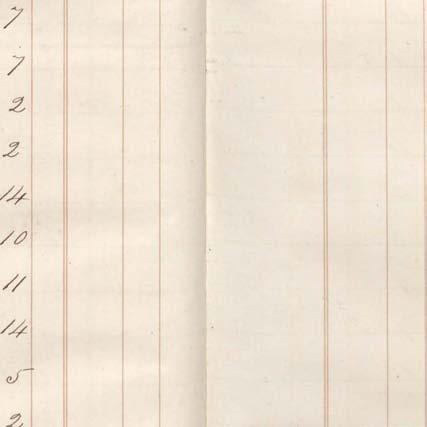 7
7
2
2
14
10
11
14
5
2